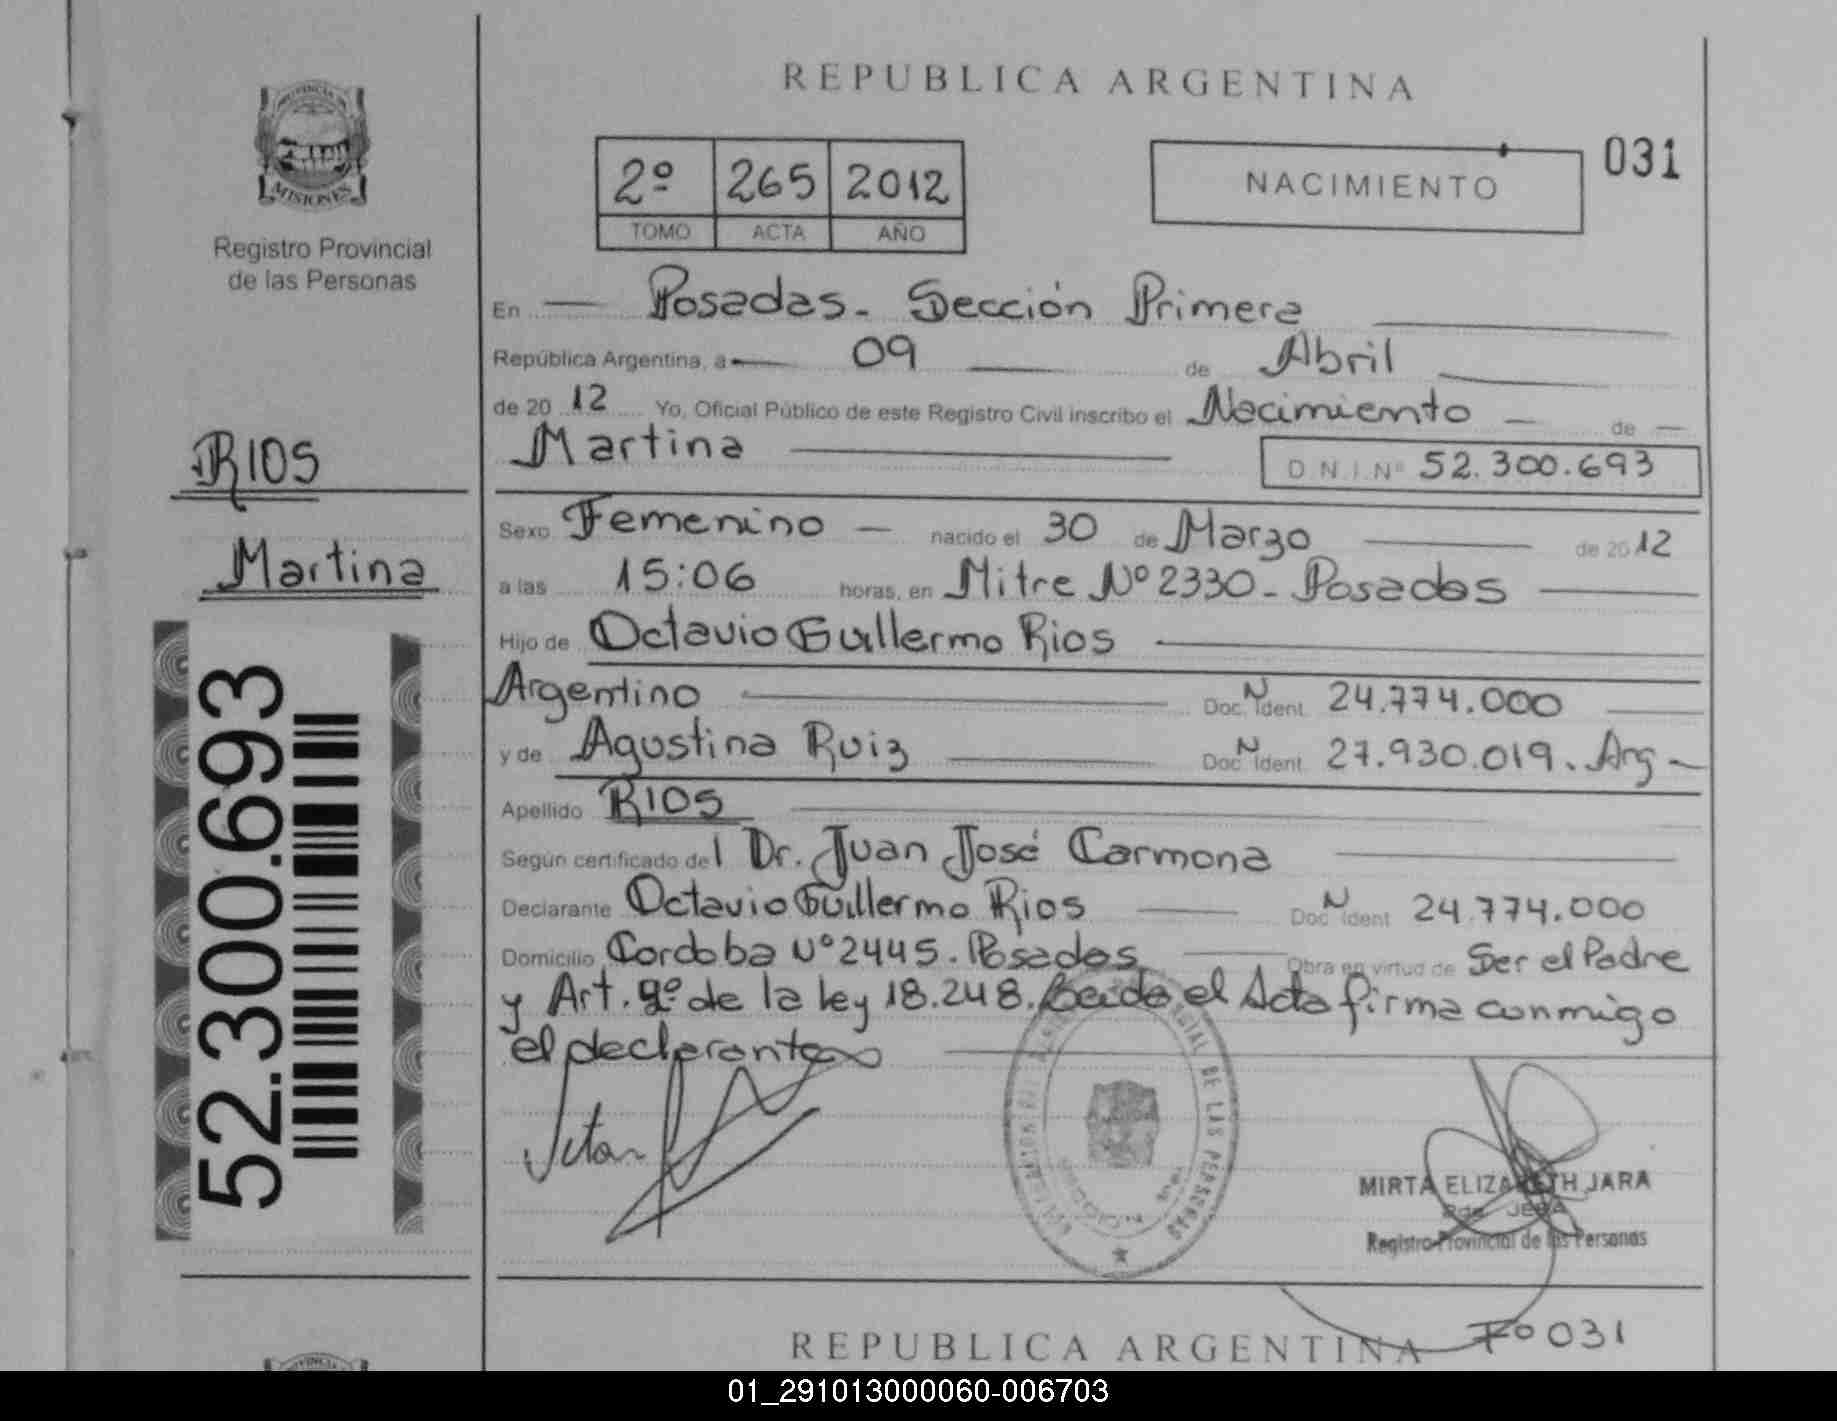 REPUBLICA ARGENTINA
PROVINCIA DE
MISIONES
Registro Provincial
de las Personas
2º 265 2012
TOMO ACTA AÑO
NACIMIENTO
031
En Posadas. Sección Primera
República Argentina, a 09 de Abril
de 2012 Yo, Oficial Público de este Registro Civil inscribo el Nacimiento de
Martina D.N.I.Nº 52.300.693
RIOS
Martina
52.300.693
Sexo Femenino nacido el 30 de Marzo de 2012
a las 15:06 horas, en Mitre Nº 2330 - Posadas
Hijo de Octavio Guillermo Rios
Argentino Doc. N Ident. 24.774.000
y de Agustina Ruiz Doc. N Ident. 27.930.019. Arg -
Apellido RIOS
Según certificado del Dr. Juan José Carmona
Declarante Octavio Guillermo Rios Doc. N Ident 24.774.000
Domicilio Cordoba Nº 2445. Posados Obra en virtud de Ser el Padre
y Art. 2º de la ley 18.248. Leida el Acta firma conmigo
el declarante
DE LAS PERSONAS
MIRTA ELIZABETH JARA
Registro Provincial de las Personas
REPUBLICA ARGENTINA
Fº 031
01_291013000060-006703